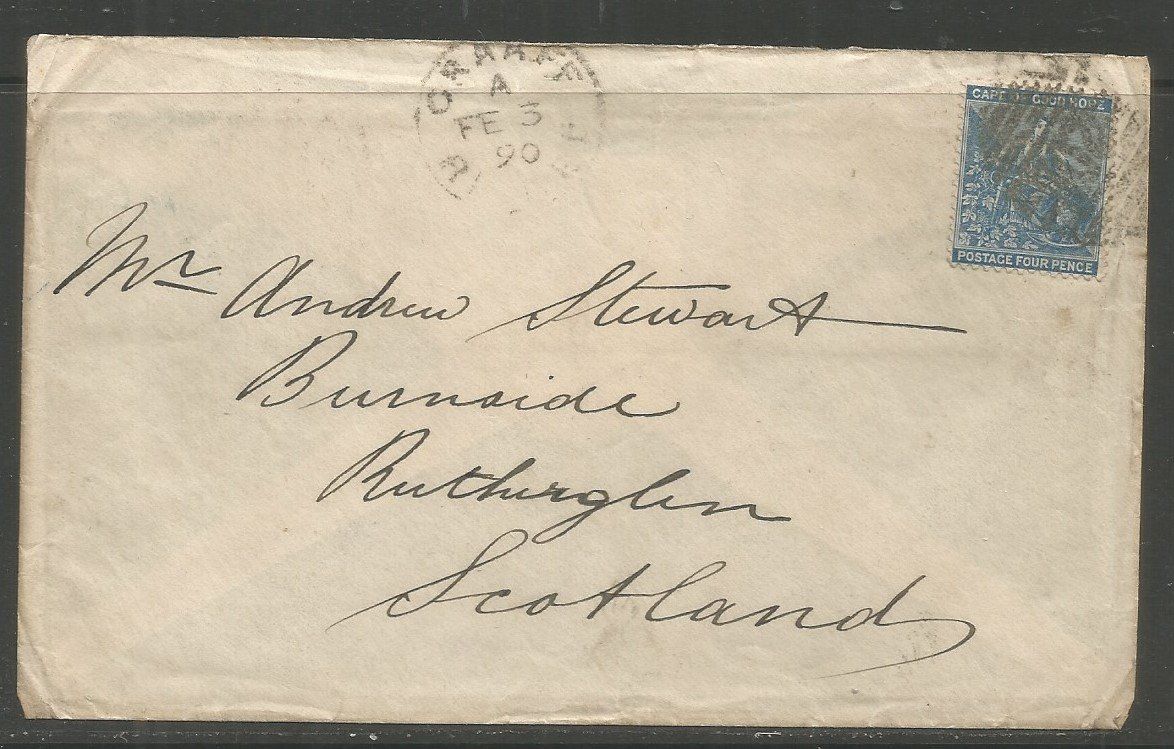 A
FE 3
90
CAPE OF GOOD HOPE
POSTAGE FOUR PENCE
Mr Andrew Stewart
Burnside
Rutherglen
Scotland